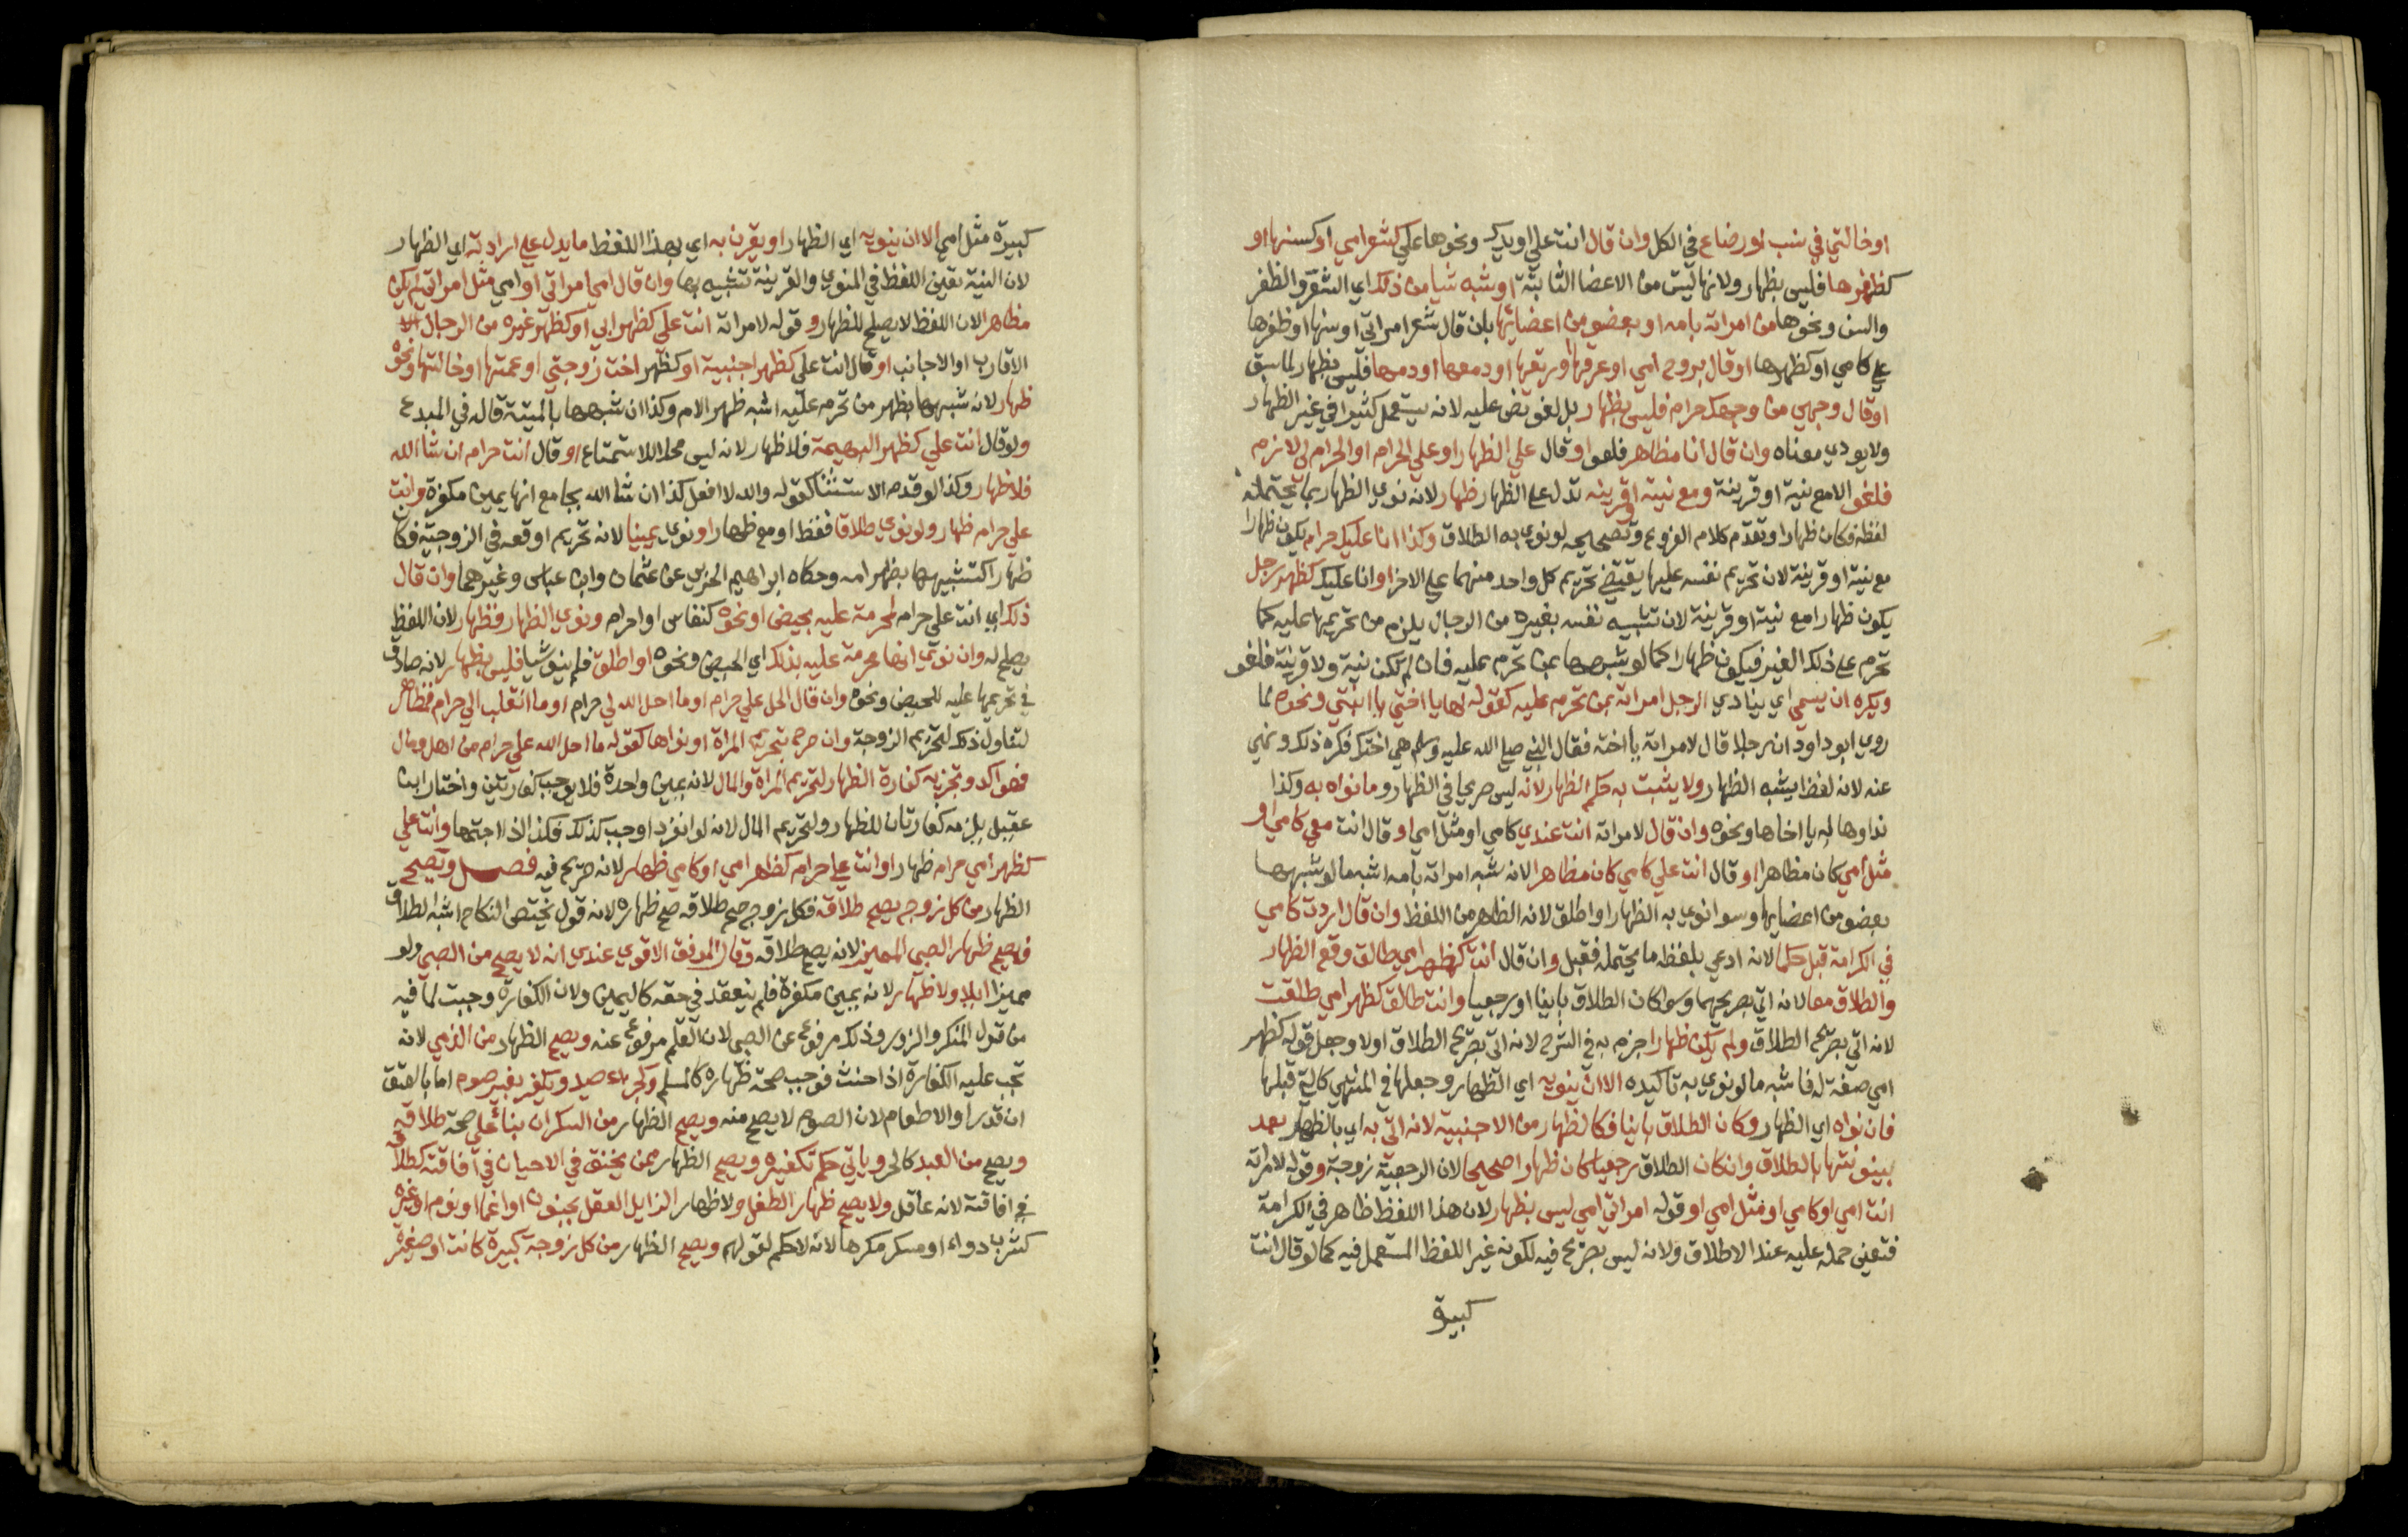 او خالتي في نسب او رضاع في الكل وان قال انت علي او يدك ونحوها علي كشعر امي او كسنها او
كظفرها فليس بظهار ولانها ليست من الاعضا الثابتة او شبه شيا من ذلك اي الشعر والظفر
والسن ونحوها من امراته بامه او بعضو من اعضائها بان قال شعر امراتي او سنها او ظفرها
علي كامي او كظهرها او قال بروح امي او عرقها او ريقها او دمعها او دمها فليس بظهار لما سبق
او قال وجهي من وجهك حرام فليس بظهار بل لغو نص عليه لانه يستعمل كثيرا في غير الظهار
ولا يودي معناه وان قال انا مظاهر فلغو او قال علي الظهار او علي الحرام او الحرام لي لازم
فلغو الا مع نية او قرينة ومع نية او قرينه تدل علي الظهار ظهار لانه نوي الظهار بما يحتمله
لفظه فكان ظهارا وتقدم كلام الفروع وتصحيحه لو نوي به الطلاق وكذا انا عليك حرام يكون ظهارا
مع نية او قرينة لان تحريم نفسه عليها يقتضي تحريم كل واحد منهما علي الاخر او انا عليك كظهر رجل
يكون ظهارا مع نية او قرينة لان تشبيه نفسه بغيره من الرجال يلزم من تحريمها عليه كما
تحرم علي ذلك الغير فيكون ظهارا كما لو شبهها بمن تحرم عليه فان لم تكن نية ولا قرينة فلغو
ويكره ان يسمي اي ينادي الرجل امراته بمن تحرم عليه كقوله لها يا اختي يا ابنتي ونحوه لما
روي ابو داود ان رجلا قال لامراته يا اخته فقال النبي صلي الله عليه وسلم هي اختك فكره ذلك ونهي
عنه لانه لفظ يشبه الظهار ولا يثبت به حكم الظهار لانه ليس صريحا في الظهار وما نواه به وكذا
نداوها له يا اخاها ونحوه وان قال لامراته انت عندي كامي او مثل امي او قال انت معي كامي او
مثل امي كان مظاهرا او قال انت علي كامي كان مظاهرا لانه شبه امراته بامه اشبه ما لو شبهها
بعضو من اعضايها وسوا نوي به الظهار او اطلق لانه الظاهر من اللفظ وان قال اردت كامي
في الكرامة قبل حكما لانه ادعي بلفظه ما يحتمله فقبل وان قال انت كظهر امي طالق وقع الظهار
والطلاق معا لانه اتي بصريحهما وسوا كان الطلاق باينا او رجعيا وانت طالق كظهر امي طلقت
لانه اتي بصريح الطلاق ولم يكن ظهارا جزم به في الشرح لانه اتي بصريح الطلاق اولا وجعل قوله كظهر
امي صفة له فاشبه ما لو نوي به تاكيده الا ان ينويه اي الظهار وجعلها في المنتهي كالتي قبلها
فان نواه اي الظهار وكان الطلاق باينا فكالظهار من الاجنبية لانه اتي به اي بالظهار بعد
بينونتها بالطلاق وان كان الطلاق رجعيا كان ظهارا صحيحا لان الرجعية زوجة وقوله لامراته
انت امي او كامي او مثل امي او قوله امراتي امي ليس بظهار لان هذا اللفظ ظاهر في الكرامة
فتعين حمله عليه عند الاطلاق ولانه ليس بصريح فيه لكونه غير اللفظ المستعمل فيه كما لو قال انت
كبيرة
كبيرة مثل امي الا ان ينويه اي الظهار او يقرن به اي بهذا اللفظ ما يدل علي ارادته اي الظهار
لان النية تعين اللفظ في المنوي والقرينة تشبيه بها وان قال امي امراتي او امي مثل امراتي لم يكن
مظاهرا لان اللفظ لا يصلح للظهار وقوله لامراته انت علي كظهر ابي او كظهر غيره من الرجال
الاقارب او الاجانب او قال انت علي كظهر اجنبية او كظهر اخت زوجتي او عمتها او خالتها ونحوه
ظهار لانه شبهها بظهر من تحرم عليه اشبه ظهر الام وكذا ان شبهها بالميتة قاله في المبدع
ولو قال انت علي كظهر البهيمة فلا ظهار لانه ليس محلا للاستمتاع او قال انت حرام ان شا الله
فلا ظهار وكذا لو قدم الاستثنا كقوله والله لا افعل كذا ان شا الله بجامع انها يمين مكفرة وانت
علي حرام ظهار ولو نوي طلاقا فقط او مع ظهار او نوي يمينا لانه تحريم اوقعه في الزوجية فكان
ظهارا كتشبيهها بظهر امه وحكاه ابراهيم الحربي عن عثمان وابن عباس وغيرهما وان قال
ذلك اي انت علي حرام لمحرمة عليه بحيض او نحوه كنفاس او احرام ونوي الظهار فظهار لان اللفظ
يصلح له وان نوي انها محرمة عليه بذلك اي الحيض ونحوه او اطلق فلم ينو شيا فليس بظهار لانه صادق
في تحريمها عليه للحيض ونحوه وان قال الحل علي حرام او ما احل الله لي حرام او ما انقلب الي حرام فظاهر
لتناول ذلك لتحريم الزوجة وان صرح بتحريم المراة او نواها كقوله ما احل الله علي حرام من اهل ومال
فهو اكد وتجزيه كفارة الظهار لتحريم المراة والمال لانه يمين واحدة فلا يوجب كفارتين واختار ابن
عقيل يلزمه كفارتان للظهار ولتحريم المال لانه لو انفرد اوجب كذلك فكذا اذا اجتمعا وانت علي
كظهر امي حرام ظهار او انت علي حرام كظهر امي او كامي ظهار لانه صريح فيه فصل ويصح
الظهار من كل زوج يصح طلاقه فكل زوج صح طلاقه صح ظهاره لانه قول يختص النكاح اشبه الطلاق
فيصح ظهار الصبي المميز لانه يصح طلاقه وقال الموفق الاقوي عندي انه لا يصح من الصبي ولو
مميزا ايلا ولا ظهار لانه يمين مكفرة فلم ينعقد في حقه كاليمين ولان الكفارة وجبت لما فيه
من قول المنكر والزور وذلك مرفوع عن الصبي لان القلم مرفوع عنه ويصح الظهار من الذمي لانه
تجب عليه الكفارة اذا حنث فوجب صحة ظهاره كالمسلم وكجزاء صيد ويكفر بغير صوم اما بالعتق
ان قدر او الاطعام لان الصوم لا يصح منه ويصح الظهار من السكران بناء علي صحة طلاقه
ويصح من العبد كالحر وياتي حكم تكفيره ويصح الظهار ممن يخنق في الاحيان في افاقته كطلاقه
في افاقته لانه عاقل ولا يصح ظهار الطفل ولا ظهار الزايل العقل بجنون او اغما او نوم او غيره
كشرب دواء او مسكر مكرها لانه لا حكم لقولهم ويصح الظهار من كل زوجة كبيرة كانت او صغيرة